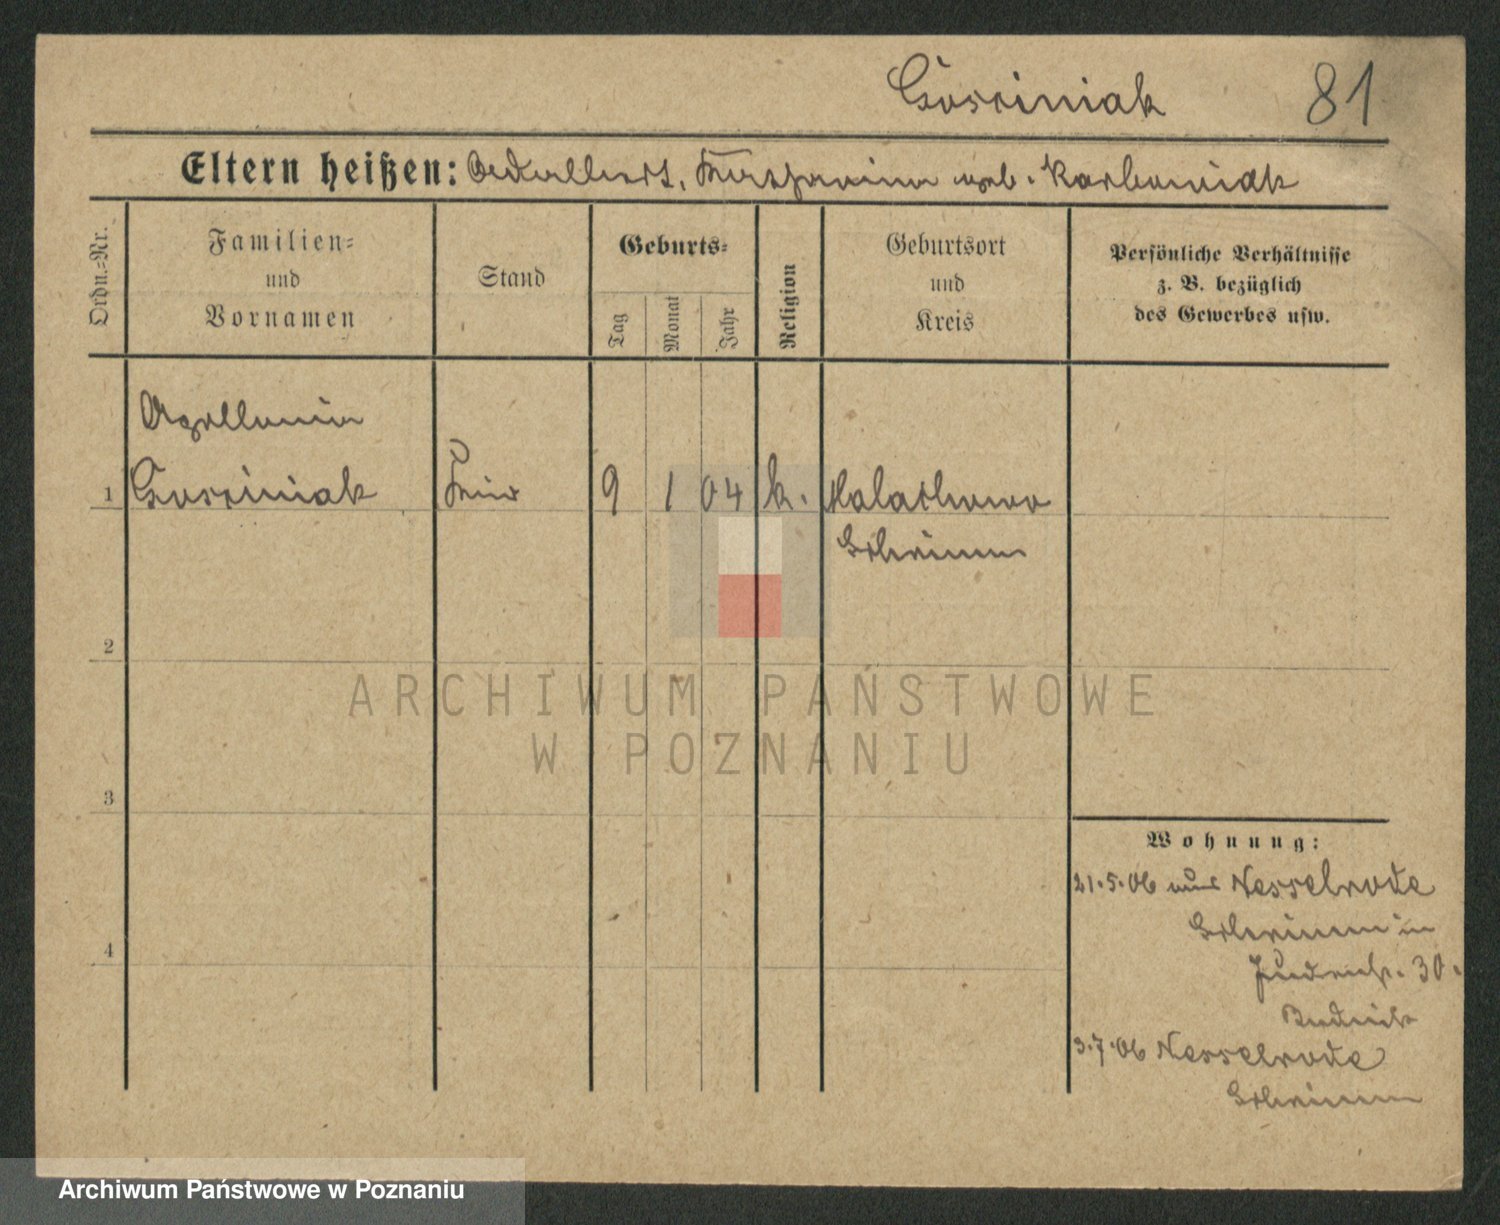 Gosciniak 81
Eltern heißen: Adalbert, geb. Karbowiak
Ordn.-Nr.
Familien-
und
Vornamen
Stand
Geburts-
Tag
Monat
Jahr
Religion
Geburtsort
und
Kreis
Persönliche Verhältnisse
z. B. bezüglich
des Gewerbes usw.
Apollonia
1 Gosciniak 9 1 04 k. Malachowo
Schrimm
2
ARCHIWUM PAŃSTWOWE
W POZNANIU
3
Wohnung:
21.5.06 aus Nesselrode
4
Schrimm in
30.
3.7.06 Nesselrode
Schrimm
Archiwum Państwowe w Poznaniu